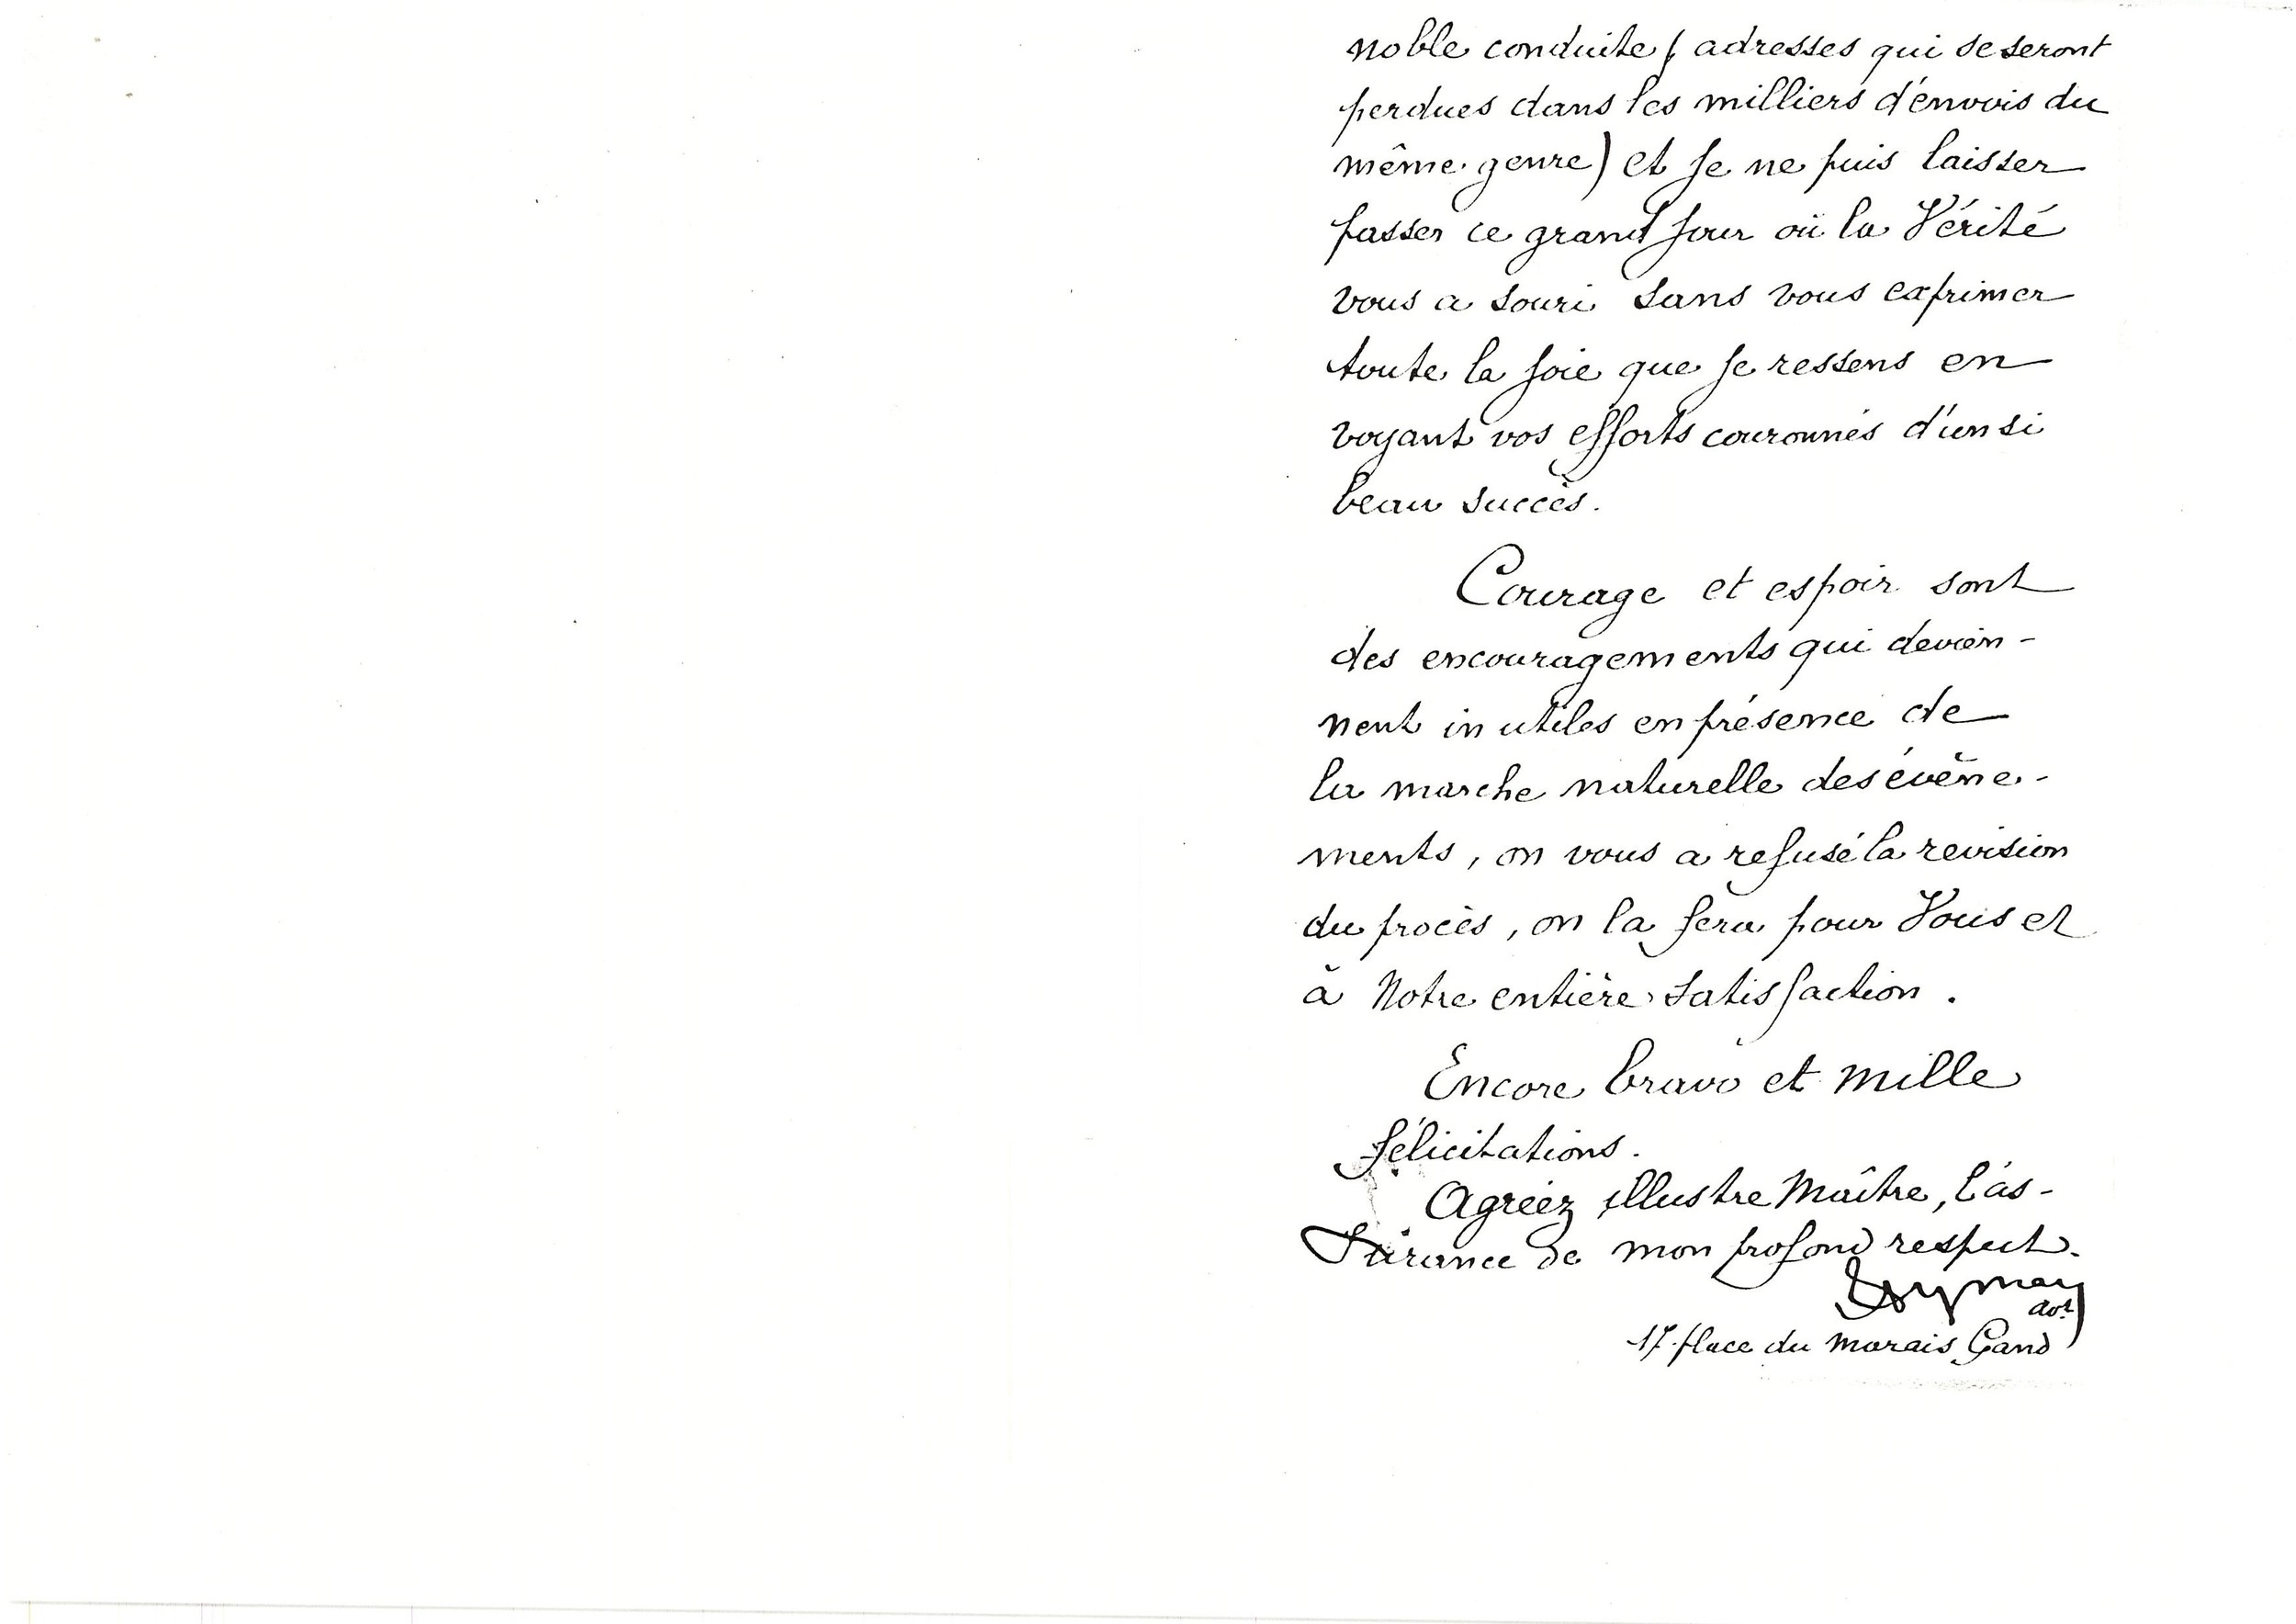 noble conduite (adresses qui se seront
perdues dans les milliers d'envois du
même genre) et je ne puis laisser
passer ce grand jour où la Vérité
vous a souri sans vous exprimer
toute la joie que je ressens en
voyant vos efforts couronnés d'un si
beau succès.
Courage et espoir sont
des encouragements qui devien-
nent inutiles en présence de
la marche naturelle des évène-
ments, on vous a refusé la revision
du procès, on la fera pour Vous et
à Notre entière satisfaction.
Encore bravo et mille
félicitations.
Agréez illustre Maître, l'as-
surance de mon profond respect.
avt
17 place du Marais Gand